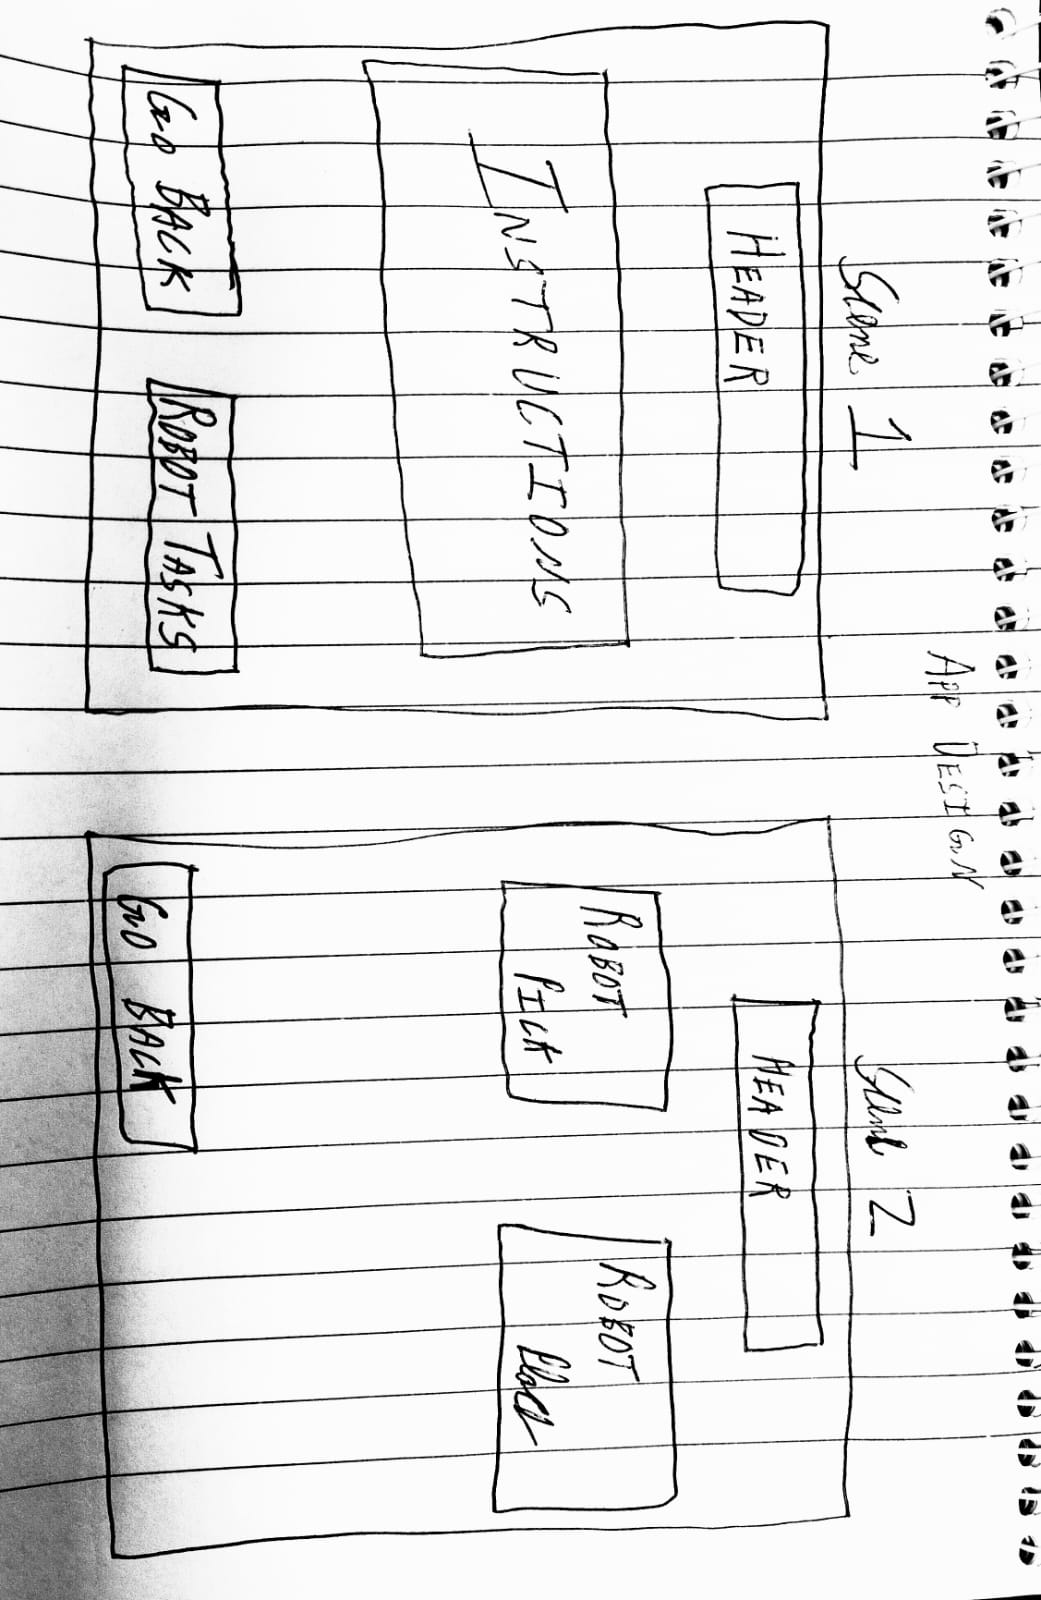 APP DESIGN
Scene 1
HEADER
INSTRUCTIONS
GO BACK
ROBOT TASKS
Scene 2
HEADER
ROBOT
PICK
ROBOT
Place
GO BACK